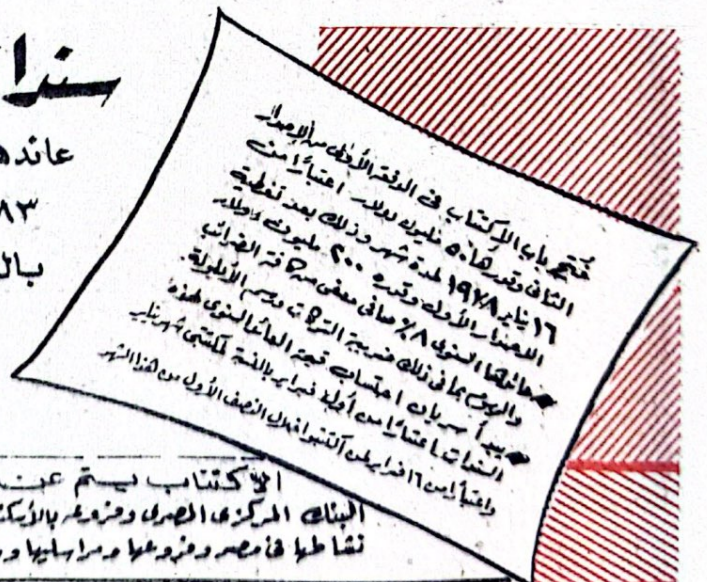 سندا
عائده
٨٣
بال
فُتح باب الاكتتاب في الدفعة الأولى من الإصدار
الثاني وقدرها ٥٠ مليون دولار اعتبارًا من
١٦ يناير ١٩٧٨ لمدة شهر وذلك بعد تغطية
الاصدار الأول وقدره ٢٠٠ مليون دولار
عائدها السنوي ٨٪ صافي معفى من كافة الضرائب
والرسوم بما في ذلك ضريبة التركات ورسم الأيلولة.
يبدأ سريان احتساب قيمة العائد السنوي لهذه
السندات اعتبارًا من أول فبراير بالنسبة لمكتتبي شهر يناير
واعتبارًا من ١٦ فبراير لمن اكتتبوا خلال النصف الأول من هذا الشهر
الاكتتاب يستم عن
البنك المركزي المصري وفروعه
نشاطها في مصر وفروعها ومراسليها